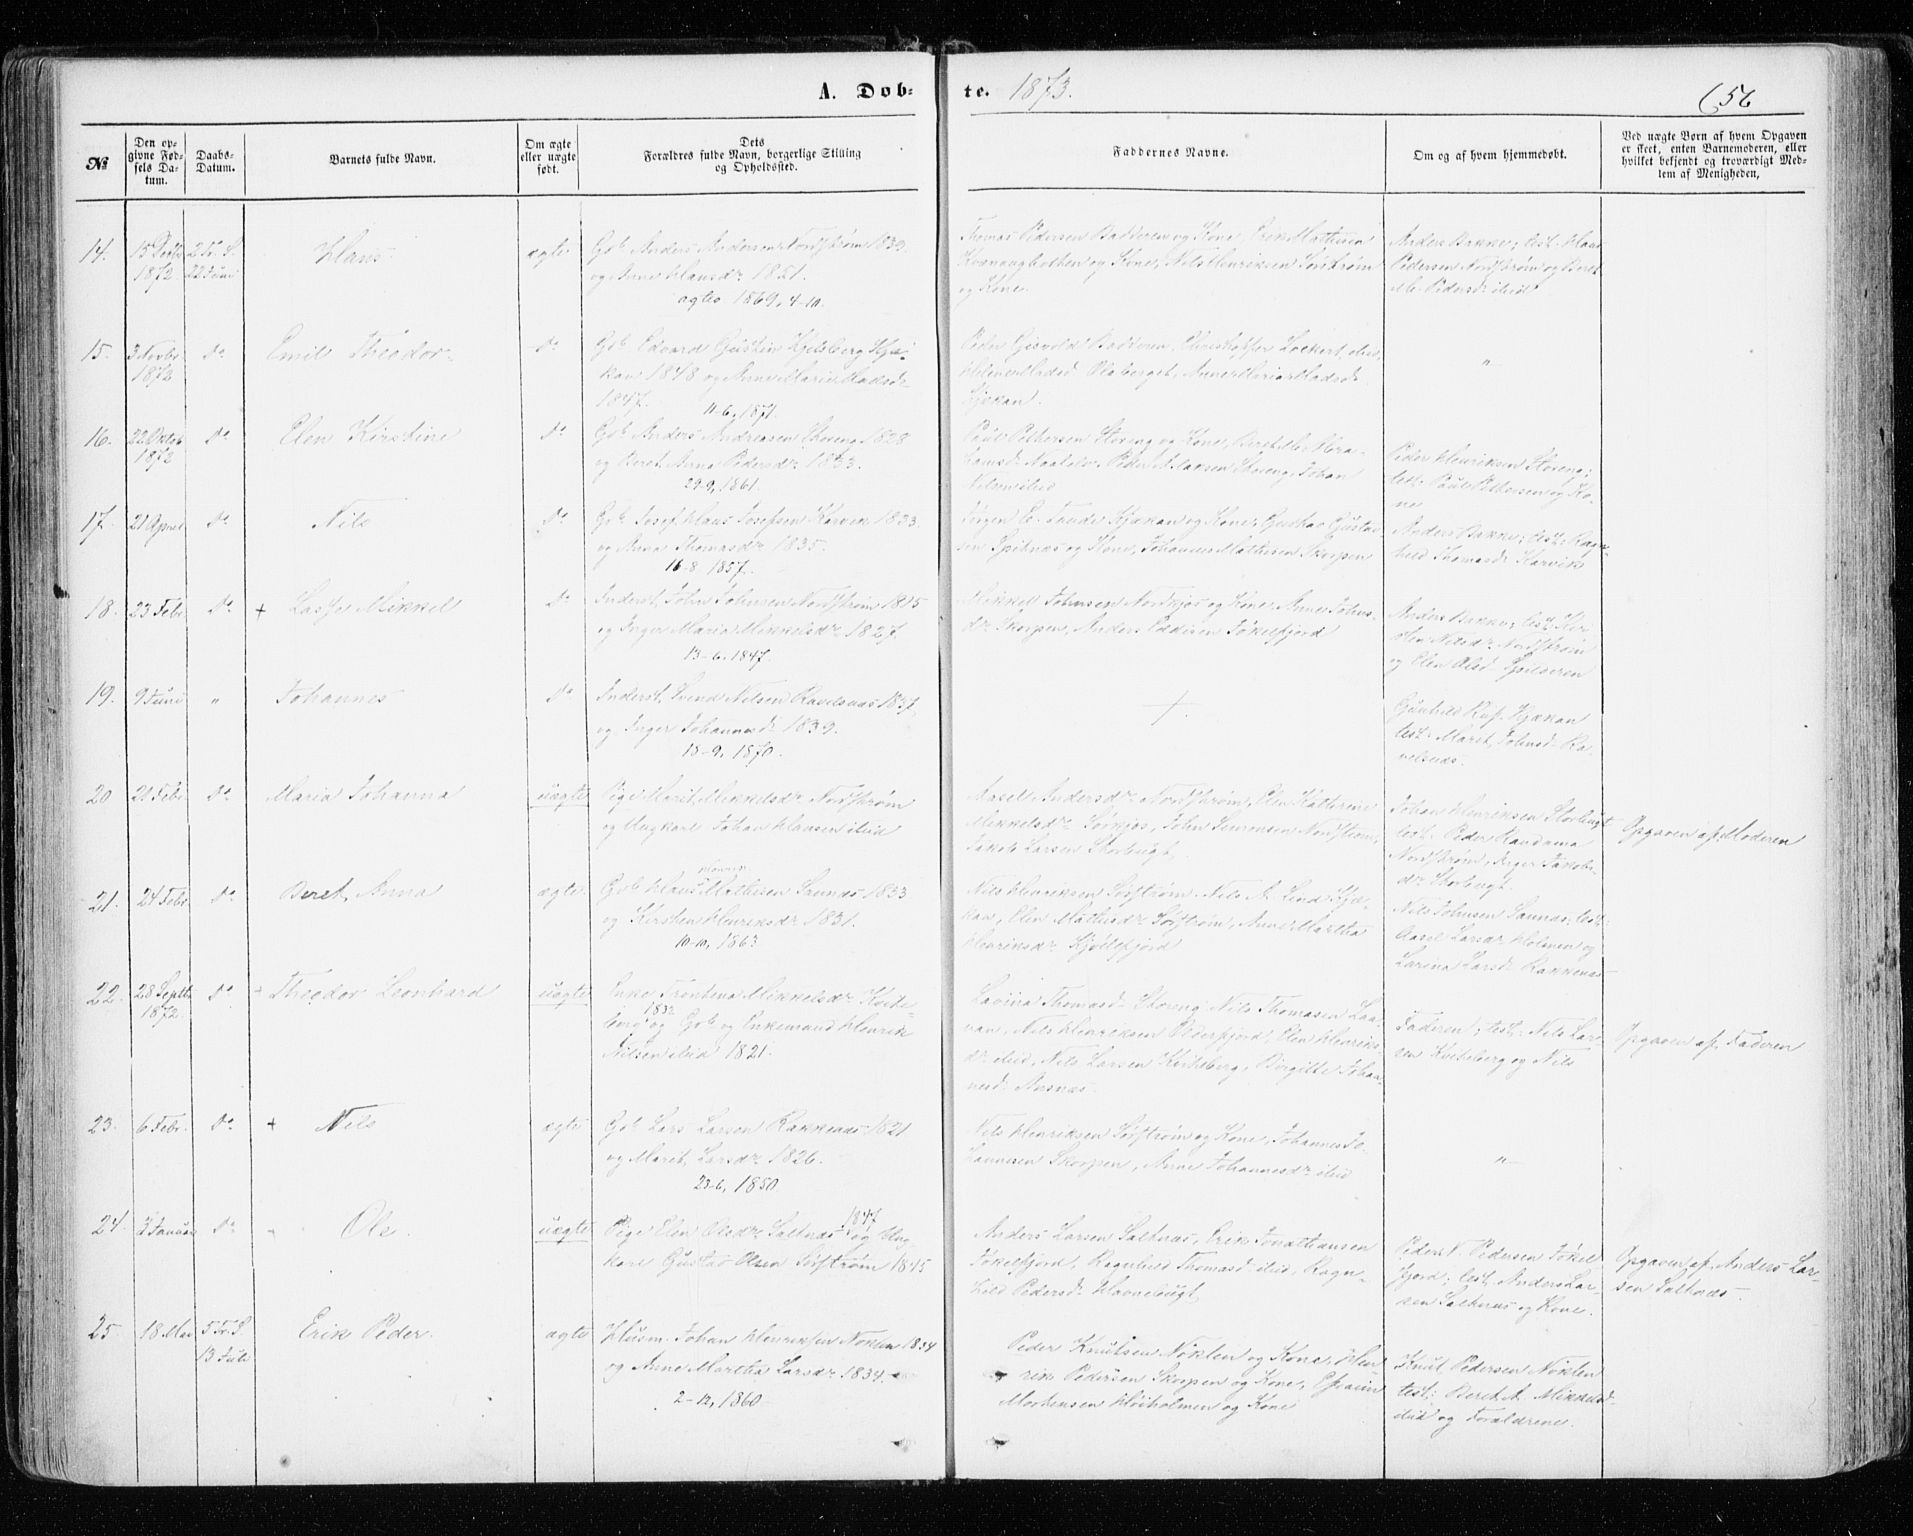 A. Døb-
te. 1873.
56
№
Den op-
givne Fød-
sels Da-
tum.
Daabs-
Datum.
Barnets fulde Navn.
Om ægte
eller uægte
født.
Dets
Forældres fulde Navn, borgerlige Stilling
og Opholdssted.
Faddernes Navne.
Om og af hvem hjemmedøbt.
Ved uægte Børn af hvem Opgaven
er skeet, enten Barnemoderen, eller
hvilket bekjendt og troværdigt Med-
lem af Menigheden,
14.
1872
22 Juni
Hans
ægte
Gbr. Anders Andersen Nordstrøm 1839
og Anne Hansdr. 1851.
ægtev 1869, 4-10.
Thomas Pedersen Badderen og Kone, Erik Mathisen
Kvænangbotten og Kone, Nils Henriksen Sørstrøm
og Kone.
Anders Bakke; test. Hans
Pedersen Nordstrøm og Beret
M. Pedersd. ibid
15.
3 Novbr.
1872
Do
Emil Theodor
Do
Gbr. Edvard Gustin Kjelsberg Kjæ-
kan 1848 og Anne Marie Madsdr.
1847.
11-6, 1871.
Peder Gisvold Badderen, Christoffer Lockert ibid,
Helene Madsd. Olaberget, Anne Maria Madsd.
Kjækan.
"
16.
22 Oktob
1872
Do
Elen Kirstine
Do
Gbr. Anders Andreasen Storeng 1828
og Beret Anna Pedersdr. 1833.
29-9, 1861.
Paul Pettersen Storeng og Kone, Beret M. Abra-
hamsd.
Storeng, Johan
Nilsen ibid
Peder Henriksen Storeng;
test. Paul Pettersen og Ko-
ne
17.
21 April
Do
Nils
Do
Gbr. Josef Hans Josefsen Karvik 1833
og Anna Thomasdr. 1835.
16-8 1857.
Jørgen E. Taude Kjækan og Kone, Gustav Gustav-
sen Spilnæs og Kone, Johannes Mathisen Skorpen
Anders Bakke; test. Ragn-
hild Thomasd. Karvik
18.
23 Febr
Do
+ Lasse Mikkel
Do
Inderst John Johnsen Nordstrøm 1815
og Inger Maria Mikkelsdr. 1827.
13-6, 1847.
Mikkel Johnsen Nordkjos og Kone, Anne Johns-
dr. Skorpen, Anders Jøkelfjord
Anders Bakke; test. Ka-
ren Nilsdr. Nordstrøm
og Elen Olsd. Spilderen
19.
9 Juni
"
Johannes
Do
Inderst Svend Nilsen Ravelsnæs 1837
og Inger Johannesd. 1839.
18-9, 1870.
+
Gunhild Kjækan
test. Marit Johnsd. Ra-
velsnæs.
20
21 Febr
Do
Maria Johanna
uægte
Pige Marit Mikkelsdr. Nordstrøm
og Ungkarl Johan Hansen ibid
Aasel Andersdr. Nordstrøm, Elen Kathrine
Mikkelsdr. Sørkjos, John Simonsen Nordstrøm,
Jakob Larsen Storbugt.
Johan Henriksen Storbugt
test. Peder
Nordstrøm, Inger Jakobs-
dr. Storbugt.
Opgaven af Moderen
21.
24 Febr.
Do
Beret Anna
ægte
Gbr. Hans Mathisen 1833
og Kirsten Henriksdr. 1831.
10-10, 1863
Nils Henriksen Sørstrøm, Nils A. Lind Kjæ-
kan, Elen Mathisdr. Sørstrøm, Anne Martha
Henriksdr. Kjølefjord
Nils Johnsen Saunæs; test.
Aasel Larsdr. Holmen og
Larina Larsd. Rakkenæs
22.
28 Septbr
1872.
Do
Theodor Leonhard
uægte
Enke Trontena Mikkelsdr. Kvite-
1832
berg og Gbr. og Enkemand Henrik
Nilsen ibid 1821.
Lavina Thomasd. Storeng, Nils Thomasen Laa-
van, Nils Henriksen Olderfjord, Elen Henriks-
dr. ibid, Nils Larsen Kviteberg, Birgitte Johan-
nesd. Aasnæs.
Faderen; test. Nils Lar-
sen Kviteberg og Nils
Opgaven af Faderen
23.
6 Febr.
Do
+ Nils
ægte
Gbr. Lars Larsen Rakkenæs 1821
og Marit Larsdr. 1826.
23-6, 1850
Nils Henriksen Sørstrøm og Kone, Johannes Jo-
hannesen Skorpen, Anne Johannesdr. ibid
"
24.
3 Januar
Do
Ole
uægte
1847
Pige Elen Olsdr. Saltnæs og Ung-
karl Gustav Olsen Sørstrøm 1845
Anders Larsen Saltnæs, Erik Jonathansen
Jøkelfjord, Ragnhild Thomasd. ibid, Ragn-
hild Pedersd. Havnebugt
Peder N. Pedersen Jøkel-
fjord; test. Anders Lar-
sen Saltnæs og Kone.
Opgaven af Anders Lar-
sen Saltnæs.
25.
18 Mai
5 Tr. S.
13 Juli
Erik Peder.
ægte
Husm. Johan Henriksen Noklen 1834
og Anne Martha Larsdr. 1834.
2-12, 1860
Peder Knutsen Nøklen og Kone, Hen-
rik Pedersen Skorpen og Kone, Efraim
Mortensen Høiholmen og Kone
Knut Pedersen Nøklen
test; Beret A. Mikkelsd.
ibid og Forældrene.